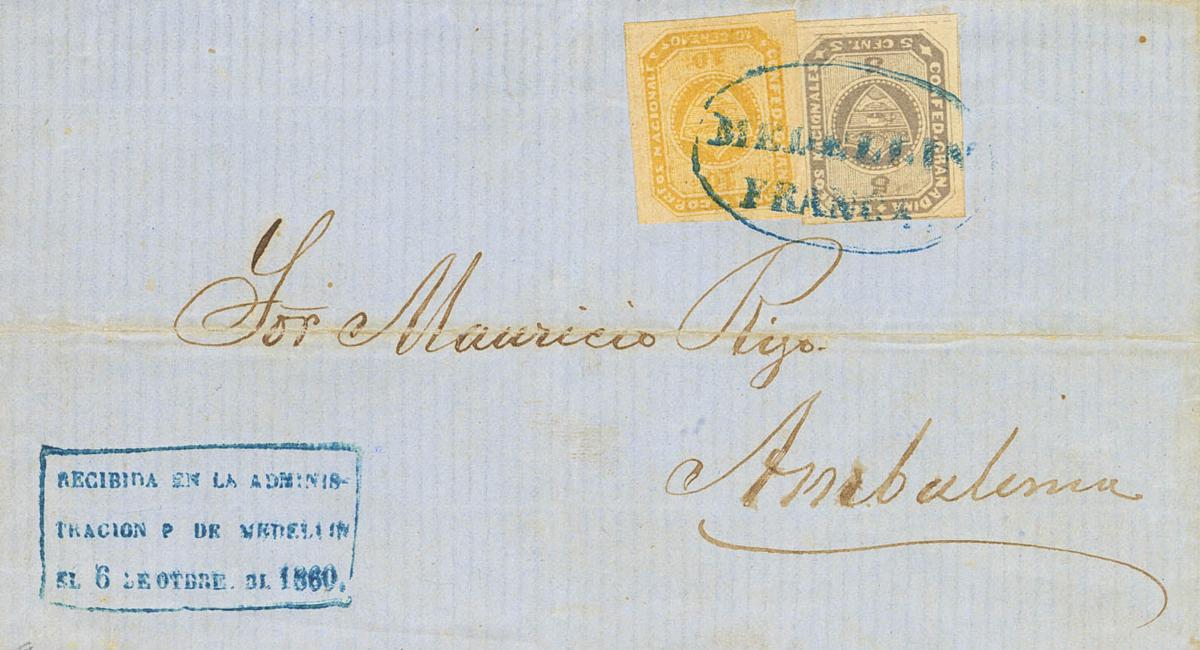 CONFED. GRANADINA
CORREOS NACIONALES
10 CENT. 10
10
CONFED. GRANADINA
CORREOS NACIONALES
5 CENT. 5
MEDELLIN
FRANCA
Sor Mauricio Rizo.
Ambalema
RECIBIDA EN LA ADMINIS-
TRACION P DE MEDELLIN
EL 6 DE OTBRE. DE 1860.